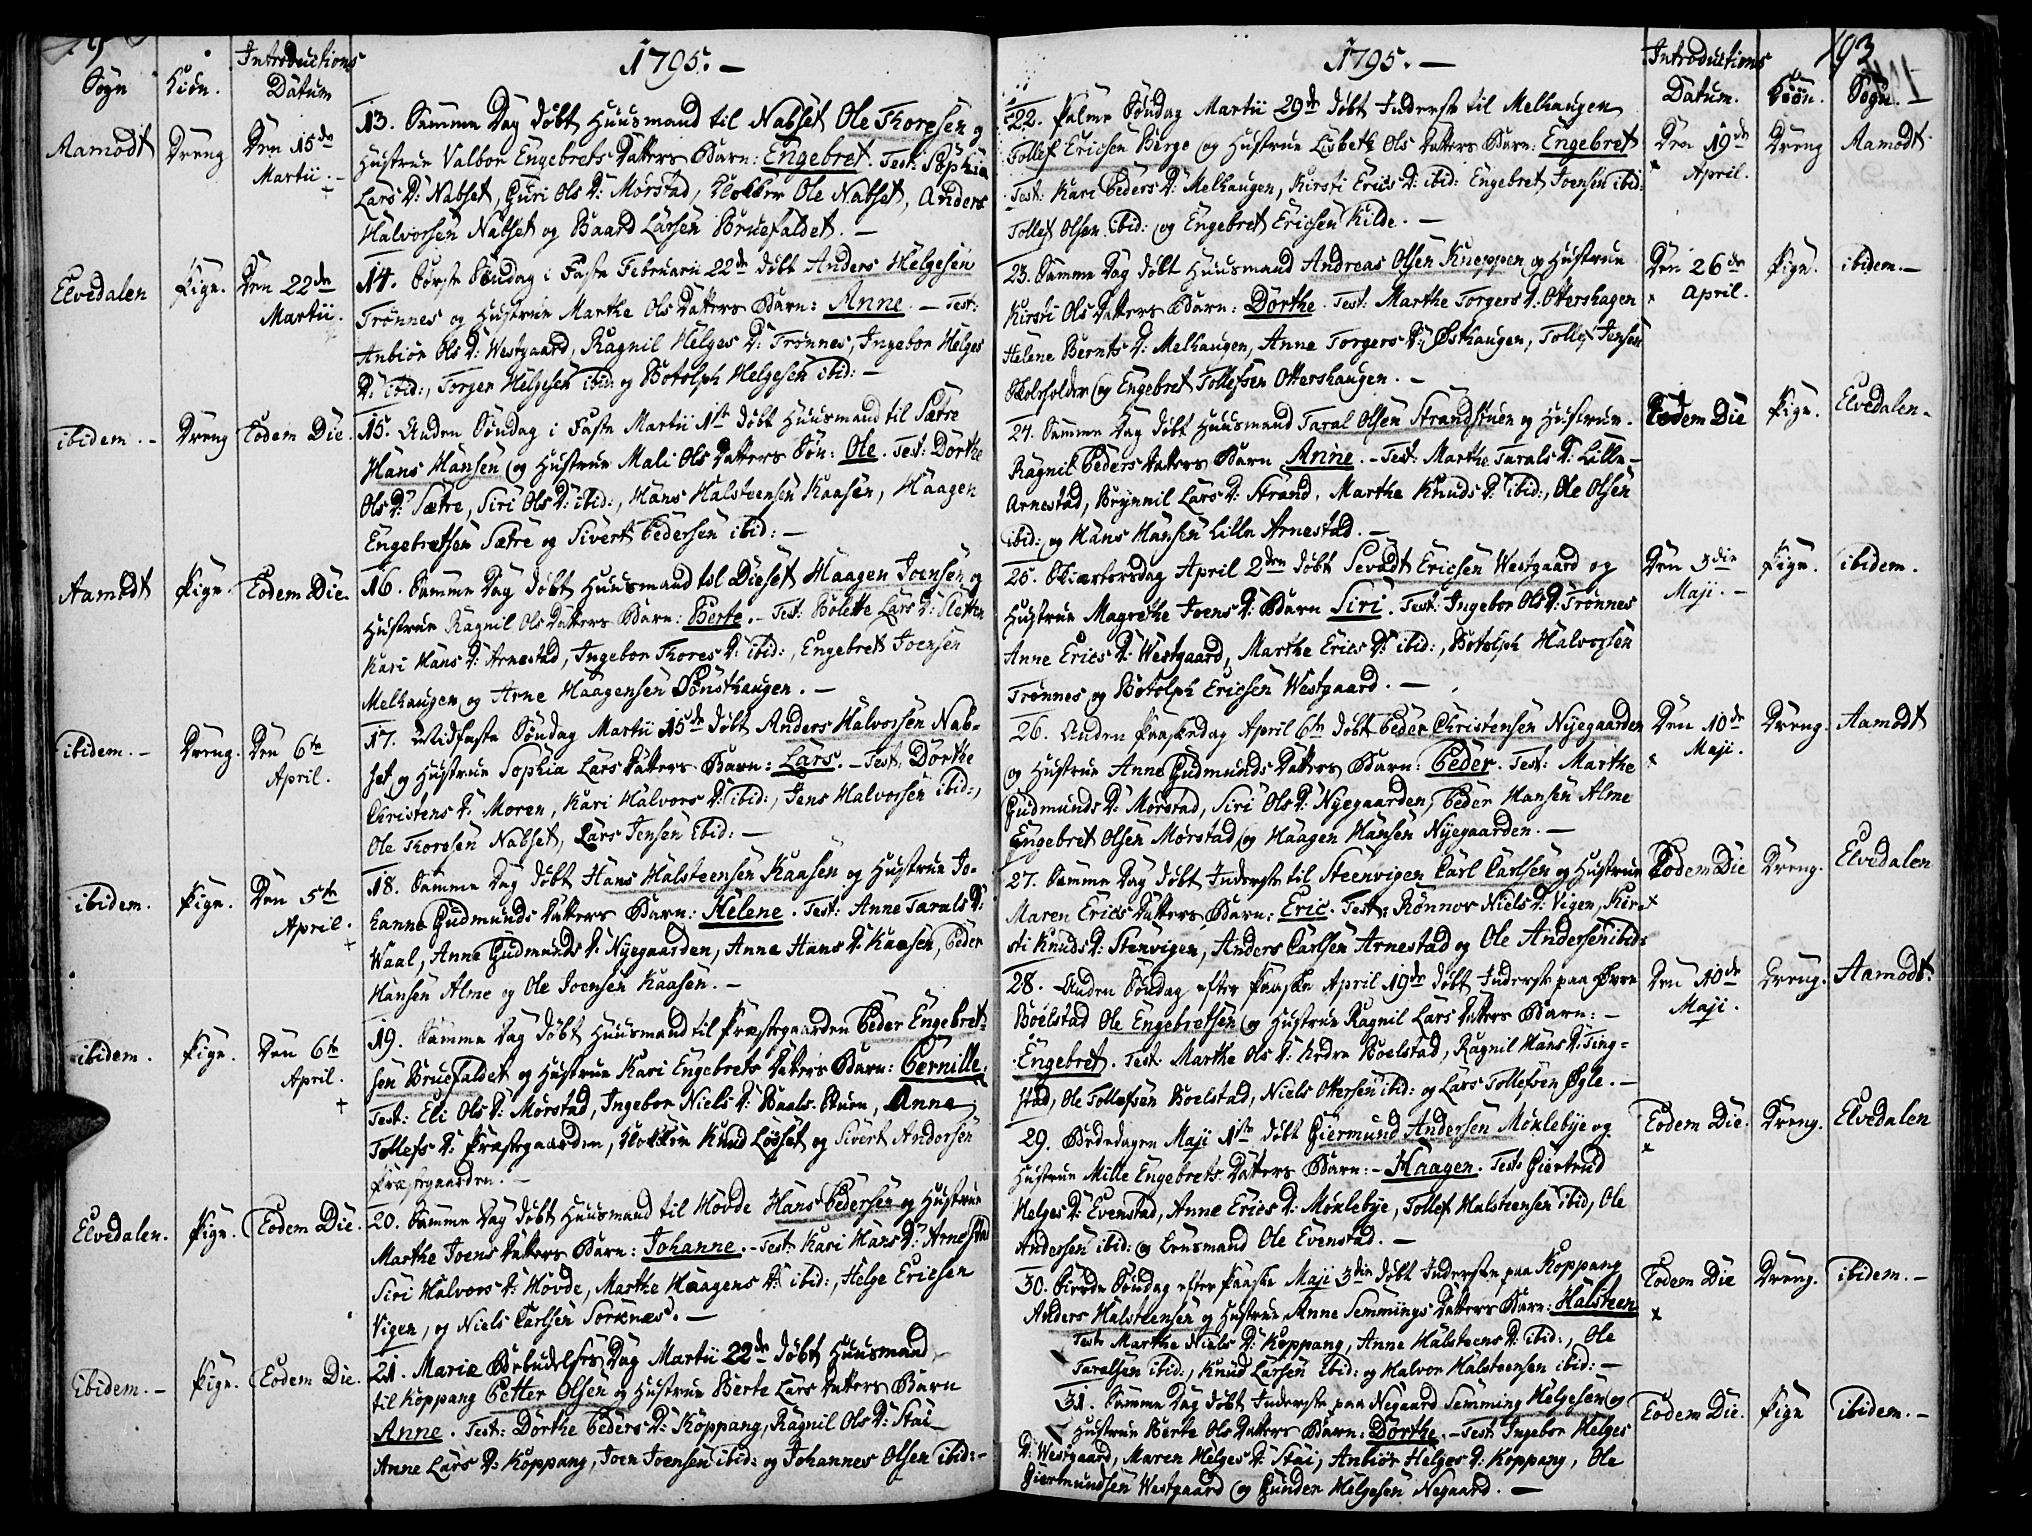 1795. —
Sogn
Kiön.
Introductions
Datum
Aamodt
Dreng
Den 15de
Martii. —
13. Samme Dag döbt Huusmand til Nabset Ole Thoresen og
Hustrue Valbor Engebrets Datters Barn: Engebret. Test: Sophia
Lars D: Nabset, Guri Ols D: Mørstad, Klokker Ole Nabset, Anders
Halvorsen Nabset og Baard Larsen Bruefaldet. —
Elvedalen
Pige.
Den 22de
Martii.
14. Første Söndag i Faste Februarii 22de döbt Anders Helgesen
Trønnes og Hustrue Marthe Ols Datters Barn: Anne. — Test:
Anbiör Ols D: Westgaard, Ragnil Helges D: Trønnes, Ingebor Helges
D: ibid:, Torger Helgesen ibid: og Botolph Helgesen ibid: —
ibidem. —
Dreng
Eodem Die.
15. Anden Söndag i Faste Martii 1ste döbt Huusmand til Sætre
Hans Hansen og Hustrue Mali Ols Datters Sön: Ole. Test: Dorthe
Ols D: Sætre, Siri Ols D: ibid:, Hans Halsteensen Kaasen, Haagen
Engebretsen Sætre og Sivert Pedersen ibid: —
Aamodt
Pige.
Eodem Die.
16. Samme Dag döbt Huusmand til Dieset Haagen Joensen og
Hustrue Ragnil Ols Datters Barn: Berte. — Test: Bolette Lars D: Sletten
Kari Hans D: Arnestad, Ingebor Thores D: ibid:, Engebret Joensen
Melhaugen og Arne Haagensen Sønsthaugen. —
ibidem. —
Dreng.
Den 6te
April.
17. Midfaste Söndag Martii 15de döbt Anders Halvorsen Nab-
set og Hustrue Sophia Lars Datters Barn: Lars. — Test: Dorthe
Christens D: Moren, Kari Halvors D: ibid:, Jens Halvorsen ibid:,
Ole Thoresen Nabset, Lars Jensen ibid: —
ibidem.
Pige.
Den 5te
April.
18. Samme Dag döbt Hans Halsteensen Kaasen og Hustrue Jo-
hanne Gudmunds Datters Barn: Helene. Test: Anne Tarals D:
Waal, Anne Gudmunds D: Nyegaarden, Anne Hans D: Kaasen, Peder
Hansen Alme og Ole Joensen Kaasen. —
ibidem.
Pige.
Den 6te
April.
19. Samme Dag döbt Huusmand til Præstegaarden Peder Engebret-
sen Bruefaldet og Hustrue Kari Engebrets Datters Barn: Pernille.
Test: Eli Ols D: Mørstad, Ingebor Niels D: Baals Stuen, Anne
Tollefs D: Præstegaarden, Klokker Knud Løsset og Sivert Andersen
Præstegaarden. —
Elvedalen.
Pige.
Eodem Die.
20. Samme Dag döbt Huusmand til Hovde Hans Pedersen og Hustrue
Marthe Joens Datters Barn: Johanne. — Test: Kari Hans D: Arnestad
Siri Halvors D: Hovde, Marthe Haagens D: ibid:, Helge Ericsen
Vigen, og Niels Carlsen Sorknæs. —
ibidem. —
Pige.
Eodem Die.
21. Mariæ Bebudelses Dag Martii 22de döbt Huusmand
til Koppang Petter Olsen og Hustrue Berte Lars Datters Barn
Anne. Test: Dorthe Peders D: Koppang, Ragnil Ols D: Stai
Anne Lars D: Koppang, Joen Joensen ibid: og Johannes Olsen ibid: —
1795. —
193
Introductions
Datum.
Kiön.
Sogn. —
22. Palme Söndag Martii 29de döbt Inderste til Melhaugen
Tollef Ericsen Berge og Hustrue Lisbeth Ols Datters Barn: Engebret
Test: Kari Peders D: Melhaugen, Kirsti Erics D: ibid: Engebret Joensen ibid:
Tollef Olsen ibid: og Engebret Ericsen Kilde. —
Den 19de
April.
Dreng
Aamodt
23. Samme Dag döbt Huusmand Andreas Olsen Kneppen og Hustrue
Kirsti Ols Datters Barn: Dorthe. Test: Marthe Torgers D: Ottershagen
Helene Bernts D: Melhaugen, Anne Torgers D: Østhaugen, Tollef Jensen
Skoleholder og Engebret Tollefsen Ottershaugen. —
Den 26de
April.
Pige.
ibidem. —
24. Samme Dag döbt Huusmand Taral Olsen Strandstuen og Hustrue.
Ragnil Peders Datters Barn Anne. — Test: Marthe Tarals D: Lille-
Arnestad, Brynnil Lars D: Strand, Marthe Knuds D: ibid:, Ole Olsen
ibid: og Hans Hansen Lille Arnestad. —
Eodem Die
Pige.
Elvedalen.
25. Skiærtorsdag April 2den döbt Sevadt Ericsen Westgaard og
Hustrue Magrethe Joens D: Barn Siri. Test: Ingebor Ols D: Trønnes
Anne Erics D: Westgaard, Marthe Erics D: ibid:, Botolph Halvorsen
Trønnes og Botolph Ericsen Westgaard. —
Den 3die
Maji. —
Pige.
ibidem.
26. Anden Paaskedag April 6te döbt Peder Christensen Nyegaarden
og Hustrue Anne Gudmunds Datters Barn: Peder. Test: Marthe
Gudmunds D: Mørstad, Siri Ols D: Nyegaarden, Peder Hansen Alme
Engebret Olsen Mørstad og Haagen Hansen Nyegaarden. —
Den 10de
Maji.
Dreng.
Aamodt
27. Samme Dag döbt Inderste til Steenvigen Carl Carlsen og Hustrue
Maren Erics Datters Barn: Eric. Test: Rønnov Niels D: Vigen, Kir-
sti Knuds D: Stenvigen, Anders Carlsen Arnestad og Ole Andersen ibid:
Eodem Die
Dreng.
Elvedalen
28. Anden Söndag efter Paaske April 19de döbt Inderste paa Øvre
Boelstad Ole Engebretsen og Hustrue Ragnil Lars Datters Barn: —
Engebret. Test: Marthe Ols D: Nedre Boelstad, Ragnil Hans D: Ting-
stad, Ole Tollefsen Boelstad, Niels Ottersen ibid: og Lars Tollefsen Ögle. —
Den 10de
Maji.
Dreng.
Aamodt.
29. Bededagen Maji 1ste döbt Giermund Andersen Möklebye og
Hustrue Mille Engebrets Datters Barn: — Haagen. Test: Giertrud
Helges D: Evenstad, Anne Erics D: Möklebye, Tollef Halsteensen ibid, Ole
Andersen ibid: og Lensmand Ole Evenstad. —
Eodem Die.
Dreng.
Elvedalen
30. Fierde Söndag efter Paaske Maji 3die döbt Inderste paa Koppang
Anders Halsteensen og Hustrue Anne Semmings Datters Barn: Halsteen
Test: Marthe Niels D: Koppang, Anne Halsteens D: ibid:, Ole
Taralsen ibid:, Knud Larsen ibid: og Halvor Halsteensen ibid: —
Eodem Die
Dreng.
ibidem. —
31. Samme Dag döbt Inderste paa Negaard Semming Helgesen og
Hustrue Berte Ols Datters Barn: Dorthe. — Test: Ingebor Helges
D: Westgaard, Maren Helges D: Stai, Anbiör Helges D: Koppang, Ole
Giermundsen Westgaard og Gunder Helgesen Negaard. —
Eodem Die.
Pige
ibidem. —